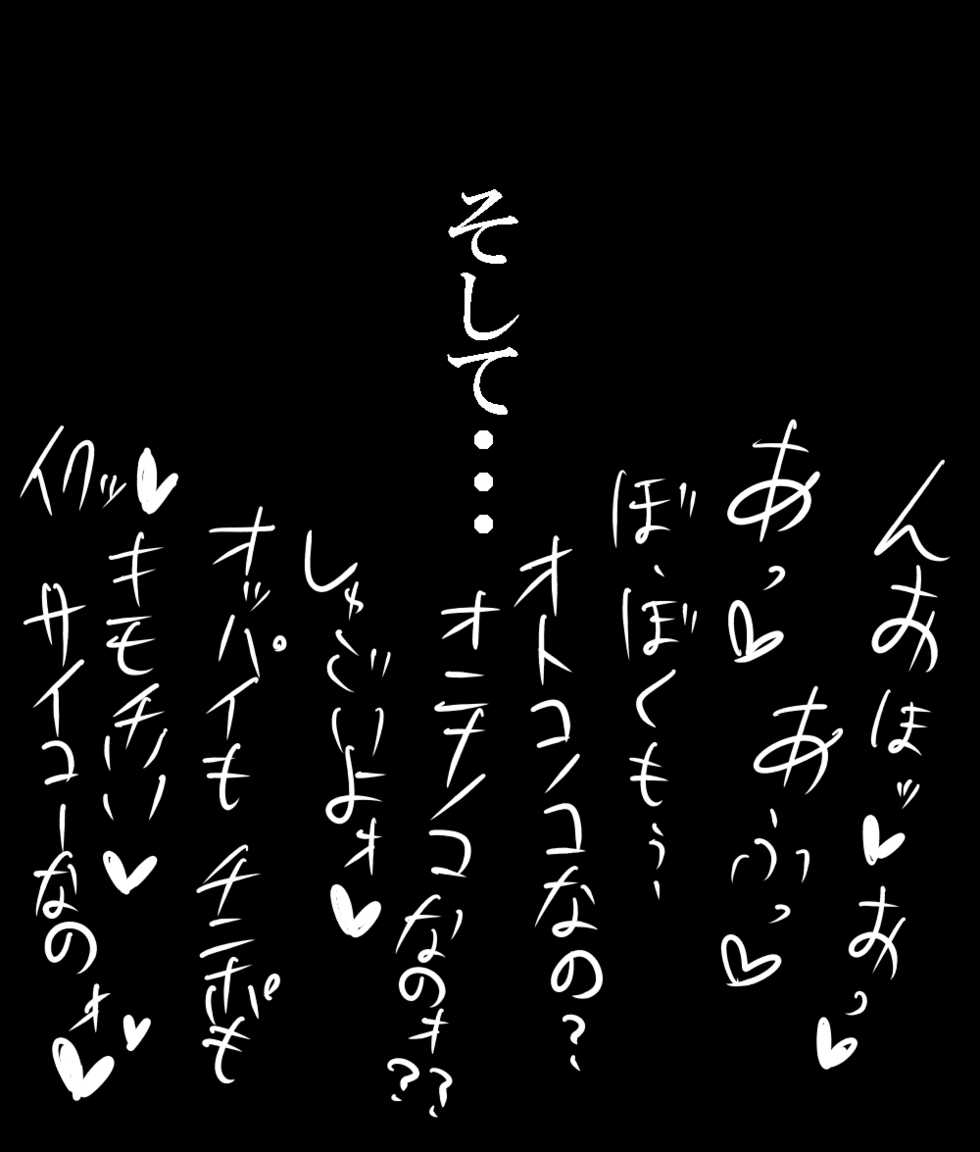 そして・・・
んおほッ♥おっ♥
あっ♡あぅふっ♡
ぼ、ぼくもぅ、
オトコノコなの？
オンナノコなのォ？？
しゅごいよォ♥
オッパイもチンポも
キモチいい♥
イクッ♥
サイコーなのォ♥♥